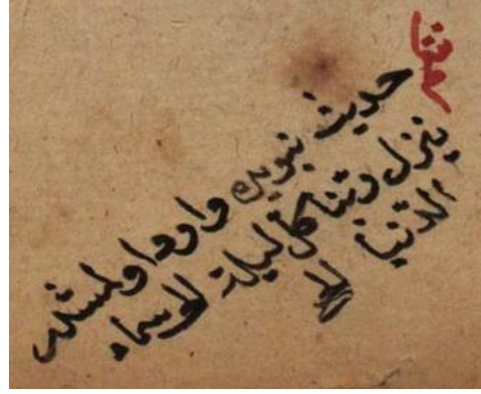 حديث نبويده وارد اولمشدر
ينزل ربنا كل ليلة الى سماء
الدنيا